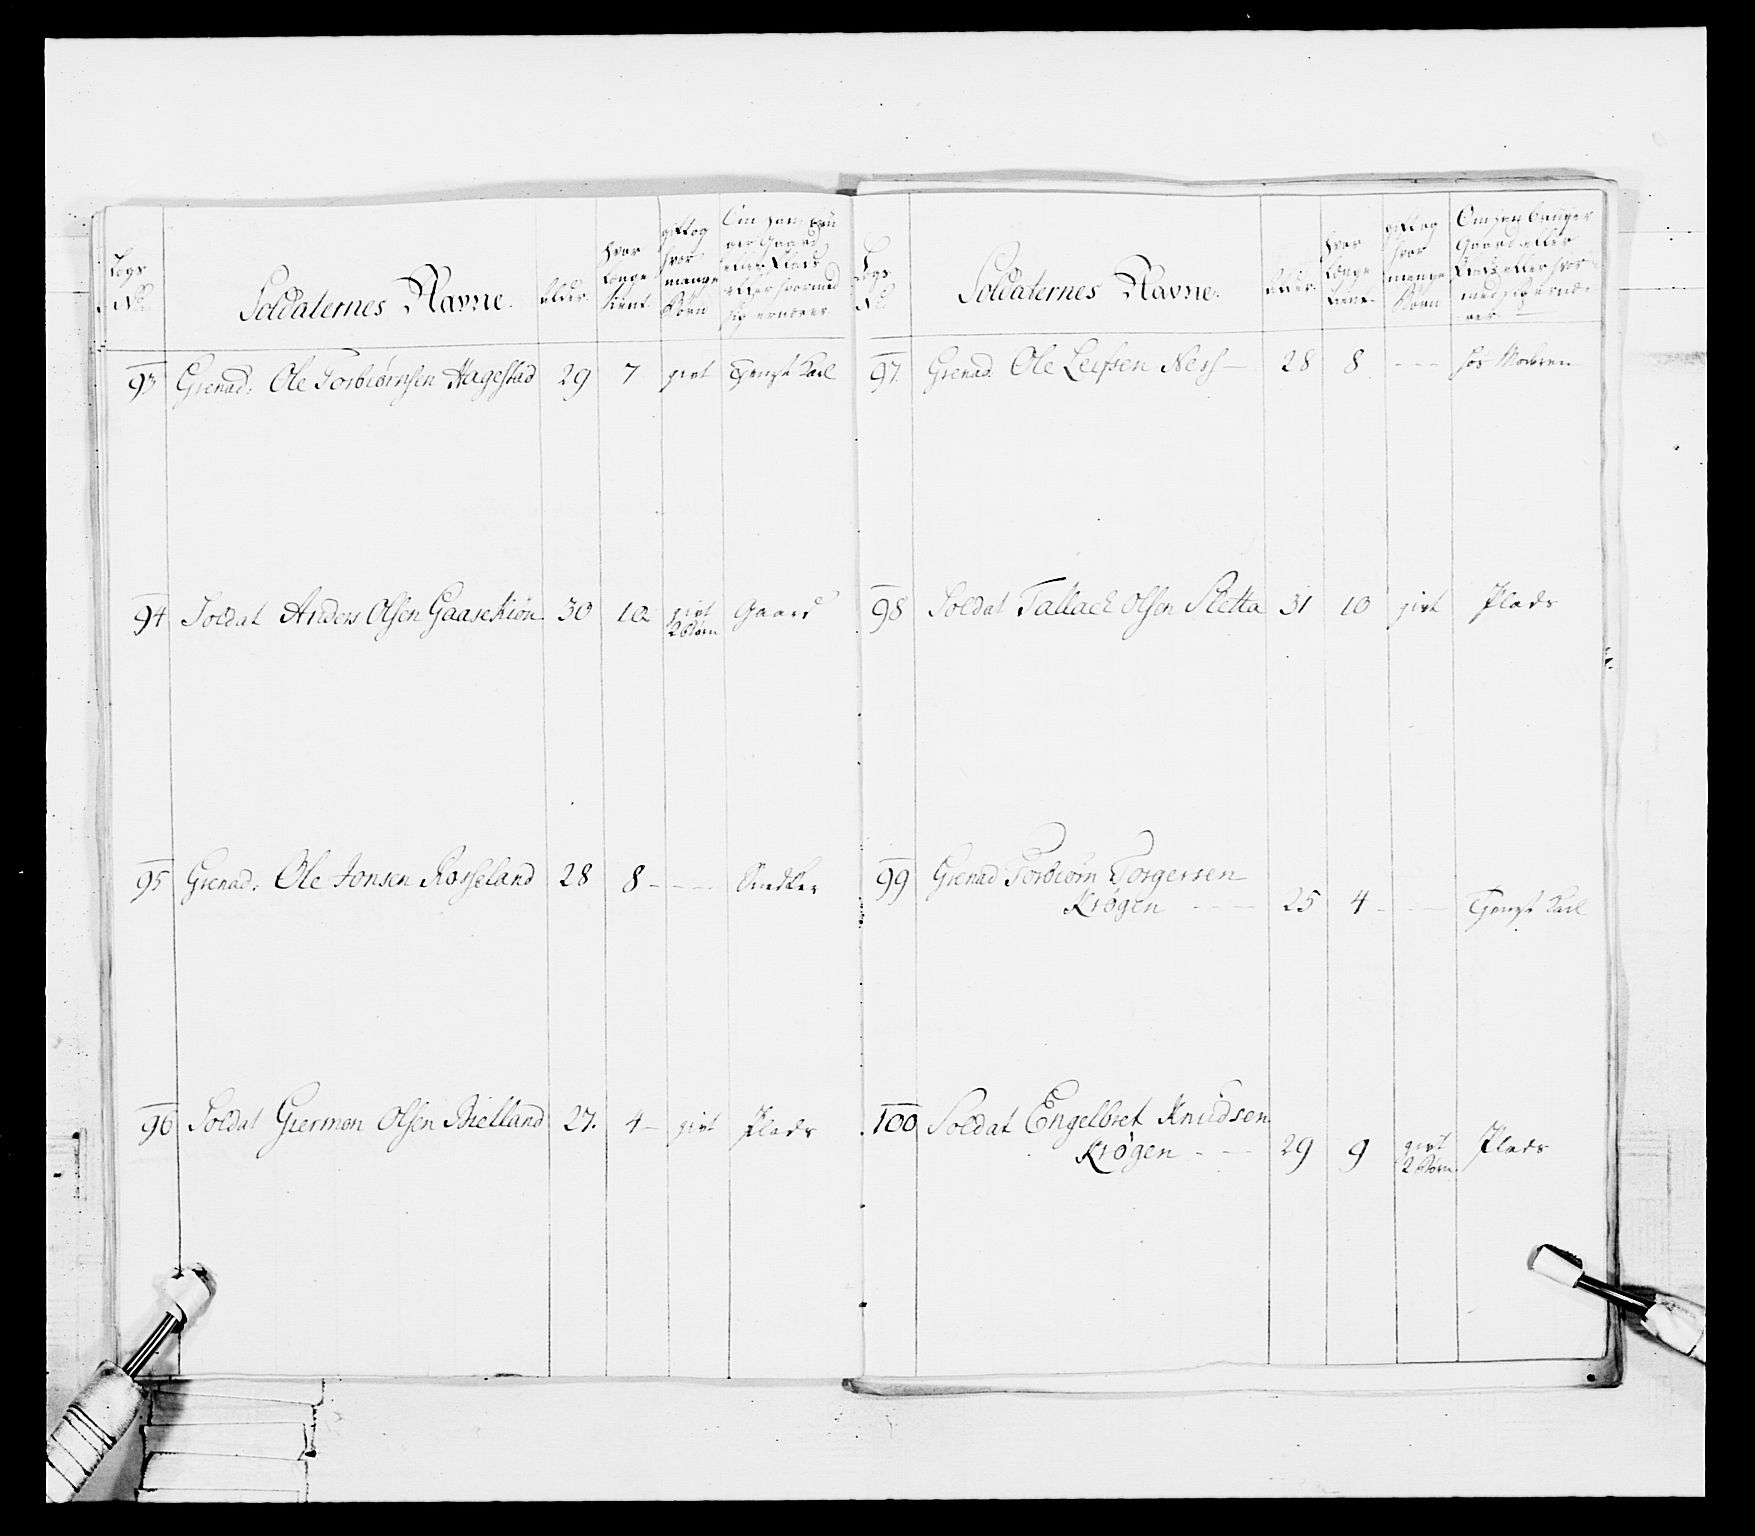 Legs No. Soldaternes Navne. Alder. hvor længe tient. gift og hvor mange Børn Om han bruger Gaard eller Plads eller hvormed sig ernærer
93 Grenad: Ole Torbiørnsen Hagestad 29 7 givt Tjenest Karl
94 Soldat Anders Olsen Gaasekiøn 30 10 givt 2 Børn Gaard
95 Grenad: Ole Jonsen Rosseland 28 8 - - - - Snedker
96 Soldat Giermon Olsen Birkeland 27. 4 - givt Plads
Legs No. Soldaternes Navne. Alder. hvor længe tient. gift og hvor mange Børn Om han bruger Gaard eller Plads eller hvormed sig ernærer
97. Grenad. Ole Leifsen Ness - 28 8 - - - hos Moderen
98 Soldat Tallack Olsen Sletta 31 10 givt Plads
99 Grenad Torbiørn Torgersen
Krøgen - - - 25 4 - - - Tjenest Karl
100 Soldat Engelbret Knudsen
Krøgen - - 29 9 givt 2 Børn Plads